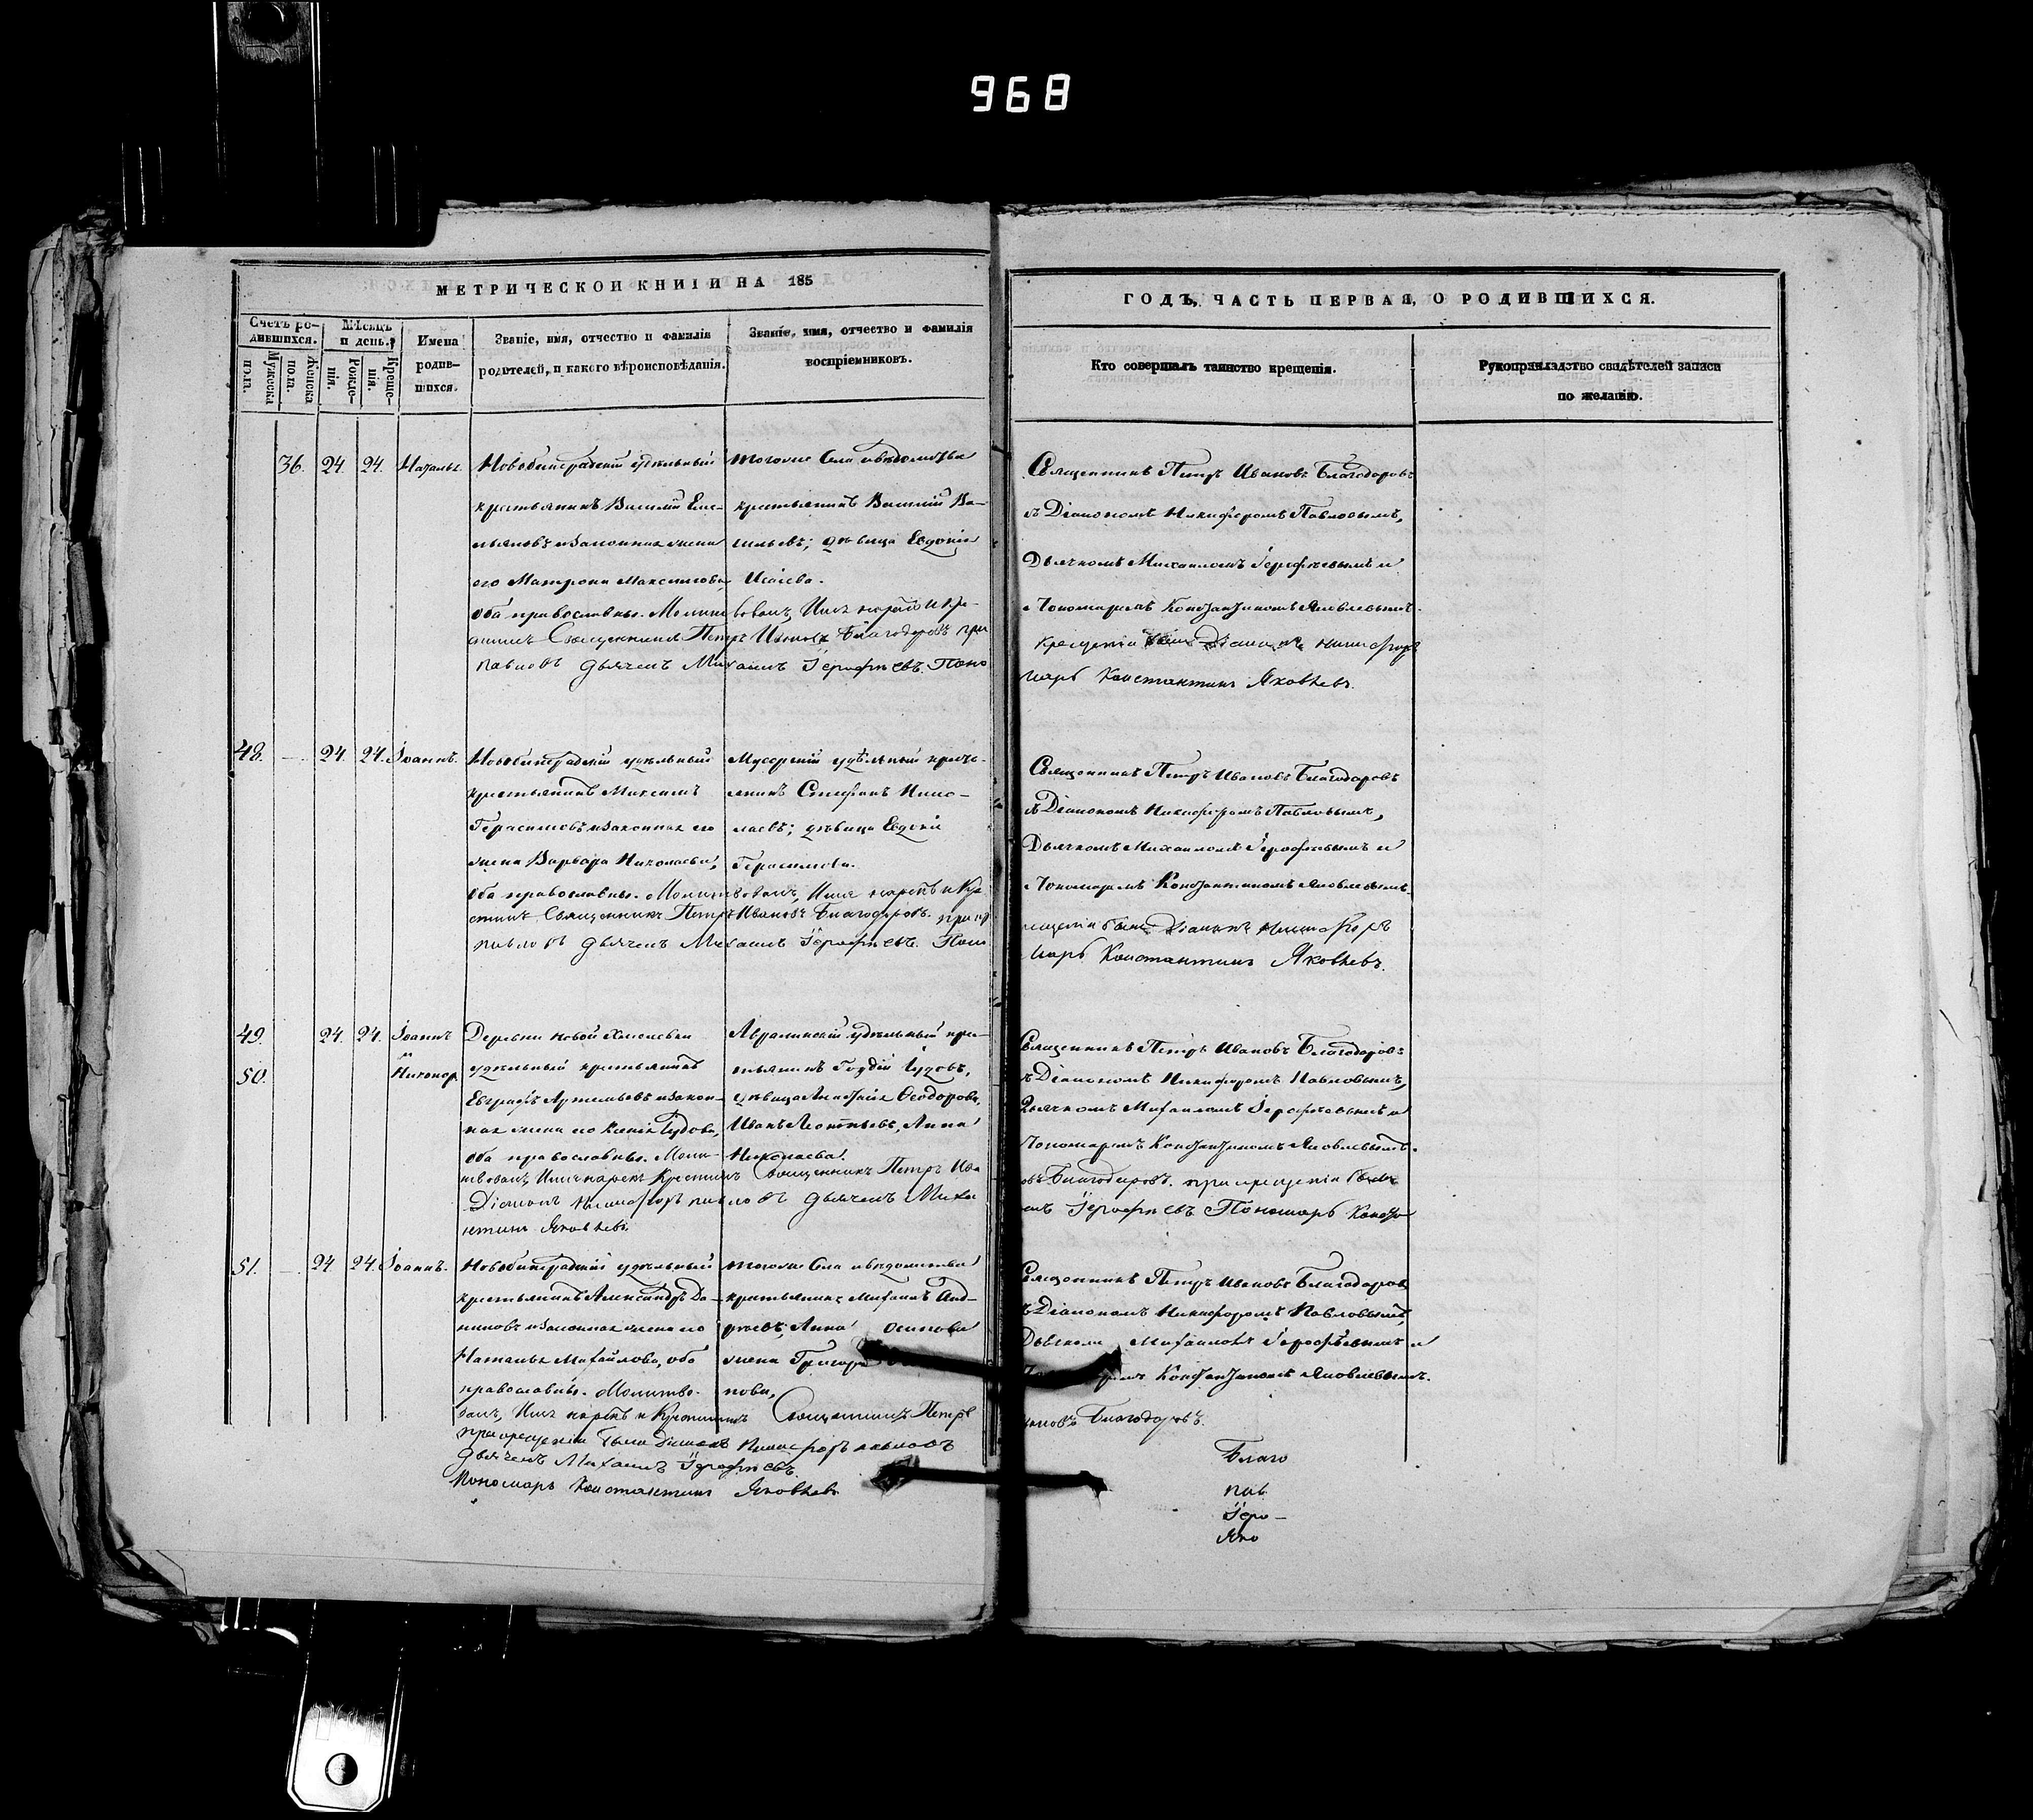 968
МЕТРИЧЕСКОЙ КНИГИ НА 185
ГОДЪ, ЧАСТЬ ПЕРВАЯ, О РОДИВШИХСЯ.
Счетъ ро-
дившихся.
Мужеска
пола.
Женска
пола.
Мѣсяцъ
и день.
Рожде-
нія.
Креще-
нія.
Имена
родив-
шихся.
Званіе, имя, отчество и фамилія
родителей, и какого вѣроисповѣданія.
Званіе, имя, отчество и фамилія
воспріемниковъ.
Кто совершалъ таинство крещенія.
Рукоприкладство свидѣтелей записи
по желанію.
36. 24. 24. Наталья
удѣльный
крестьянинъ Василій Еме-
льяновъ и законная жена
его Матрона Максимова,
оба православные. Молитвовалъ, Имя нарекъ и Кре-
стилъ Священникъ Петръ Ивановъ Благодаровъ при
крещеніи были Діаконъ Никифоръ
павловъ дьячекъ Михаилъ Іерофеевъ. Поно
марь Константинъ Яковлевъ.
тогоже Села и вѣдомства
крестьянинъ Василій Ва-
сильевъ; дѣвица Евдокія
Исаева.
Священникъ Петръ Ивановъ Благодаровъ
съ Діакономъ Никифоромъ Павловымъ,
Дьячкомъ Михаиломъ Іерофеевымъ и
Пономаремъ Константиномъ Яковлевымъ.
48. — 24. 24. Іоаннъ.
удѣльный
крестьянинъ Максимъ
Герасимовъ и законная его
жена Варвара Николаева,
оба православные. Молитвовалъ, Имя нарекъ и Кре
стилъ Священникъ Петръ Ивановъ Благодаровъ. при кр
ещеніи были Діаконъ Никифоръ
павловъ дьячекъ Михаилъ Іерофеевъ. Поно
марь Константинъ Яковлевъ.
удѣльный кресть-
янинъ Стефанъ
дѣвица Евдокія
Герасимова.
Священникъ Петръ Ивановъ Благодаровъ
съ Діакономъ Никифоромъ Павловымъ,
Дьячкомъ Михаиломъ Іерофеевымъ и
Пономаремъ Константиномъ Яковлевымъ.
49. 24. 24. Іоаннъ
и
50. Никонор
Деревни Новой
удѣльный крестьянинъ
Евграфъ Артемьевъ и закон-
ная жена его Ксенія
оба православные. Моли-
твовалъ, Имя нарекъ Крестилъ Священникъ Петръ Ива
овъ Благодаровъ. при крещеніи были
Діаконъ Никифоръ павловъ дьячекъ Миха
илъ Іерофеевъ Пономарь Конста
нтинъ Яковлевъ.
удѣльный кре-
стьянинъ
дѣвица Ѳеодорова,
Иванъ Леонтьевъ, Анна
Николаева.
Священникъ Петръ Ивановъ Благодаровъ
съ Діакономъ Никифоромъ Павловымъ,
Дьячкомъ Михаиломъ Іерофеевымъ и
Пономаремъ Константиномъ Яковлевымъ.
51. — 24 24. Іоаннъ.
удѣльный
крестьянинъ Александръ Да-
ниловъ и законная жена его
Наталья Михайлова, оба
православные. Молитво-
валъ, Имя нарекъ и Крестилъ Священникъ Петръ
Ивановъ Благодаровъ.
при крещеніи были Діаконъ Никифоръ павловъ
дьячекъ Михаилъ Іерофеевъ.
Пономарь Константинъ Яковлевъ
тогоже Села и вѣдомства
крестьянинъ Михаилъ Анд-
реевъ, Анна Осипова
жена
Священникъ Петръ Ивановъ Благодаровъ
съ Діакономъ Никифоромъ Павловымъ,
Михаиломъ Іерофеевымъ и
Константиномъ Яковлевымъ.
Благо
пав
Іеро—
Яко